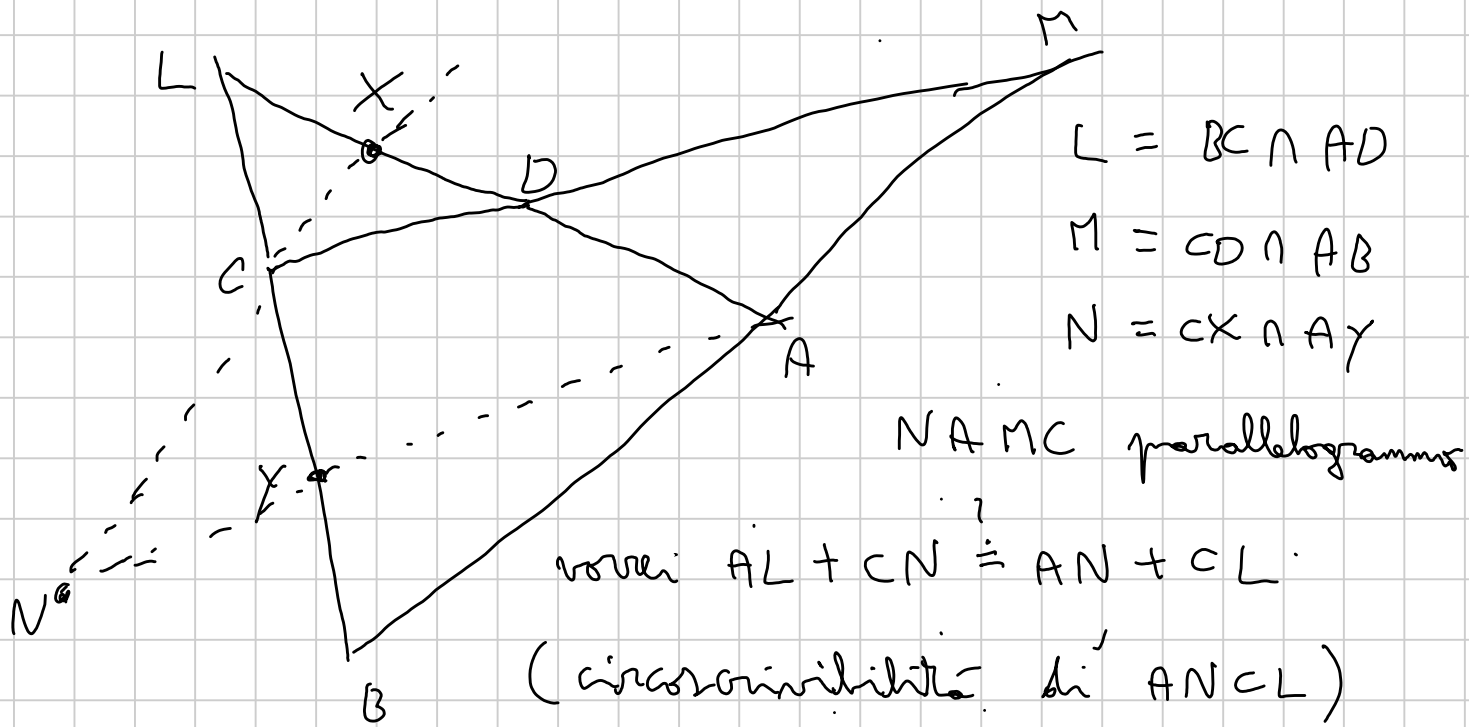 M
L
X
D
C
A
Y
N
B
L = BC ∩ AD
M = CD ∩ AB
N = CX ∩ AY
NAMC parallelogrammo
vorrei AL + CN ≟ AN + CL
(circoscrivibilità di ANCL)